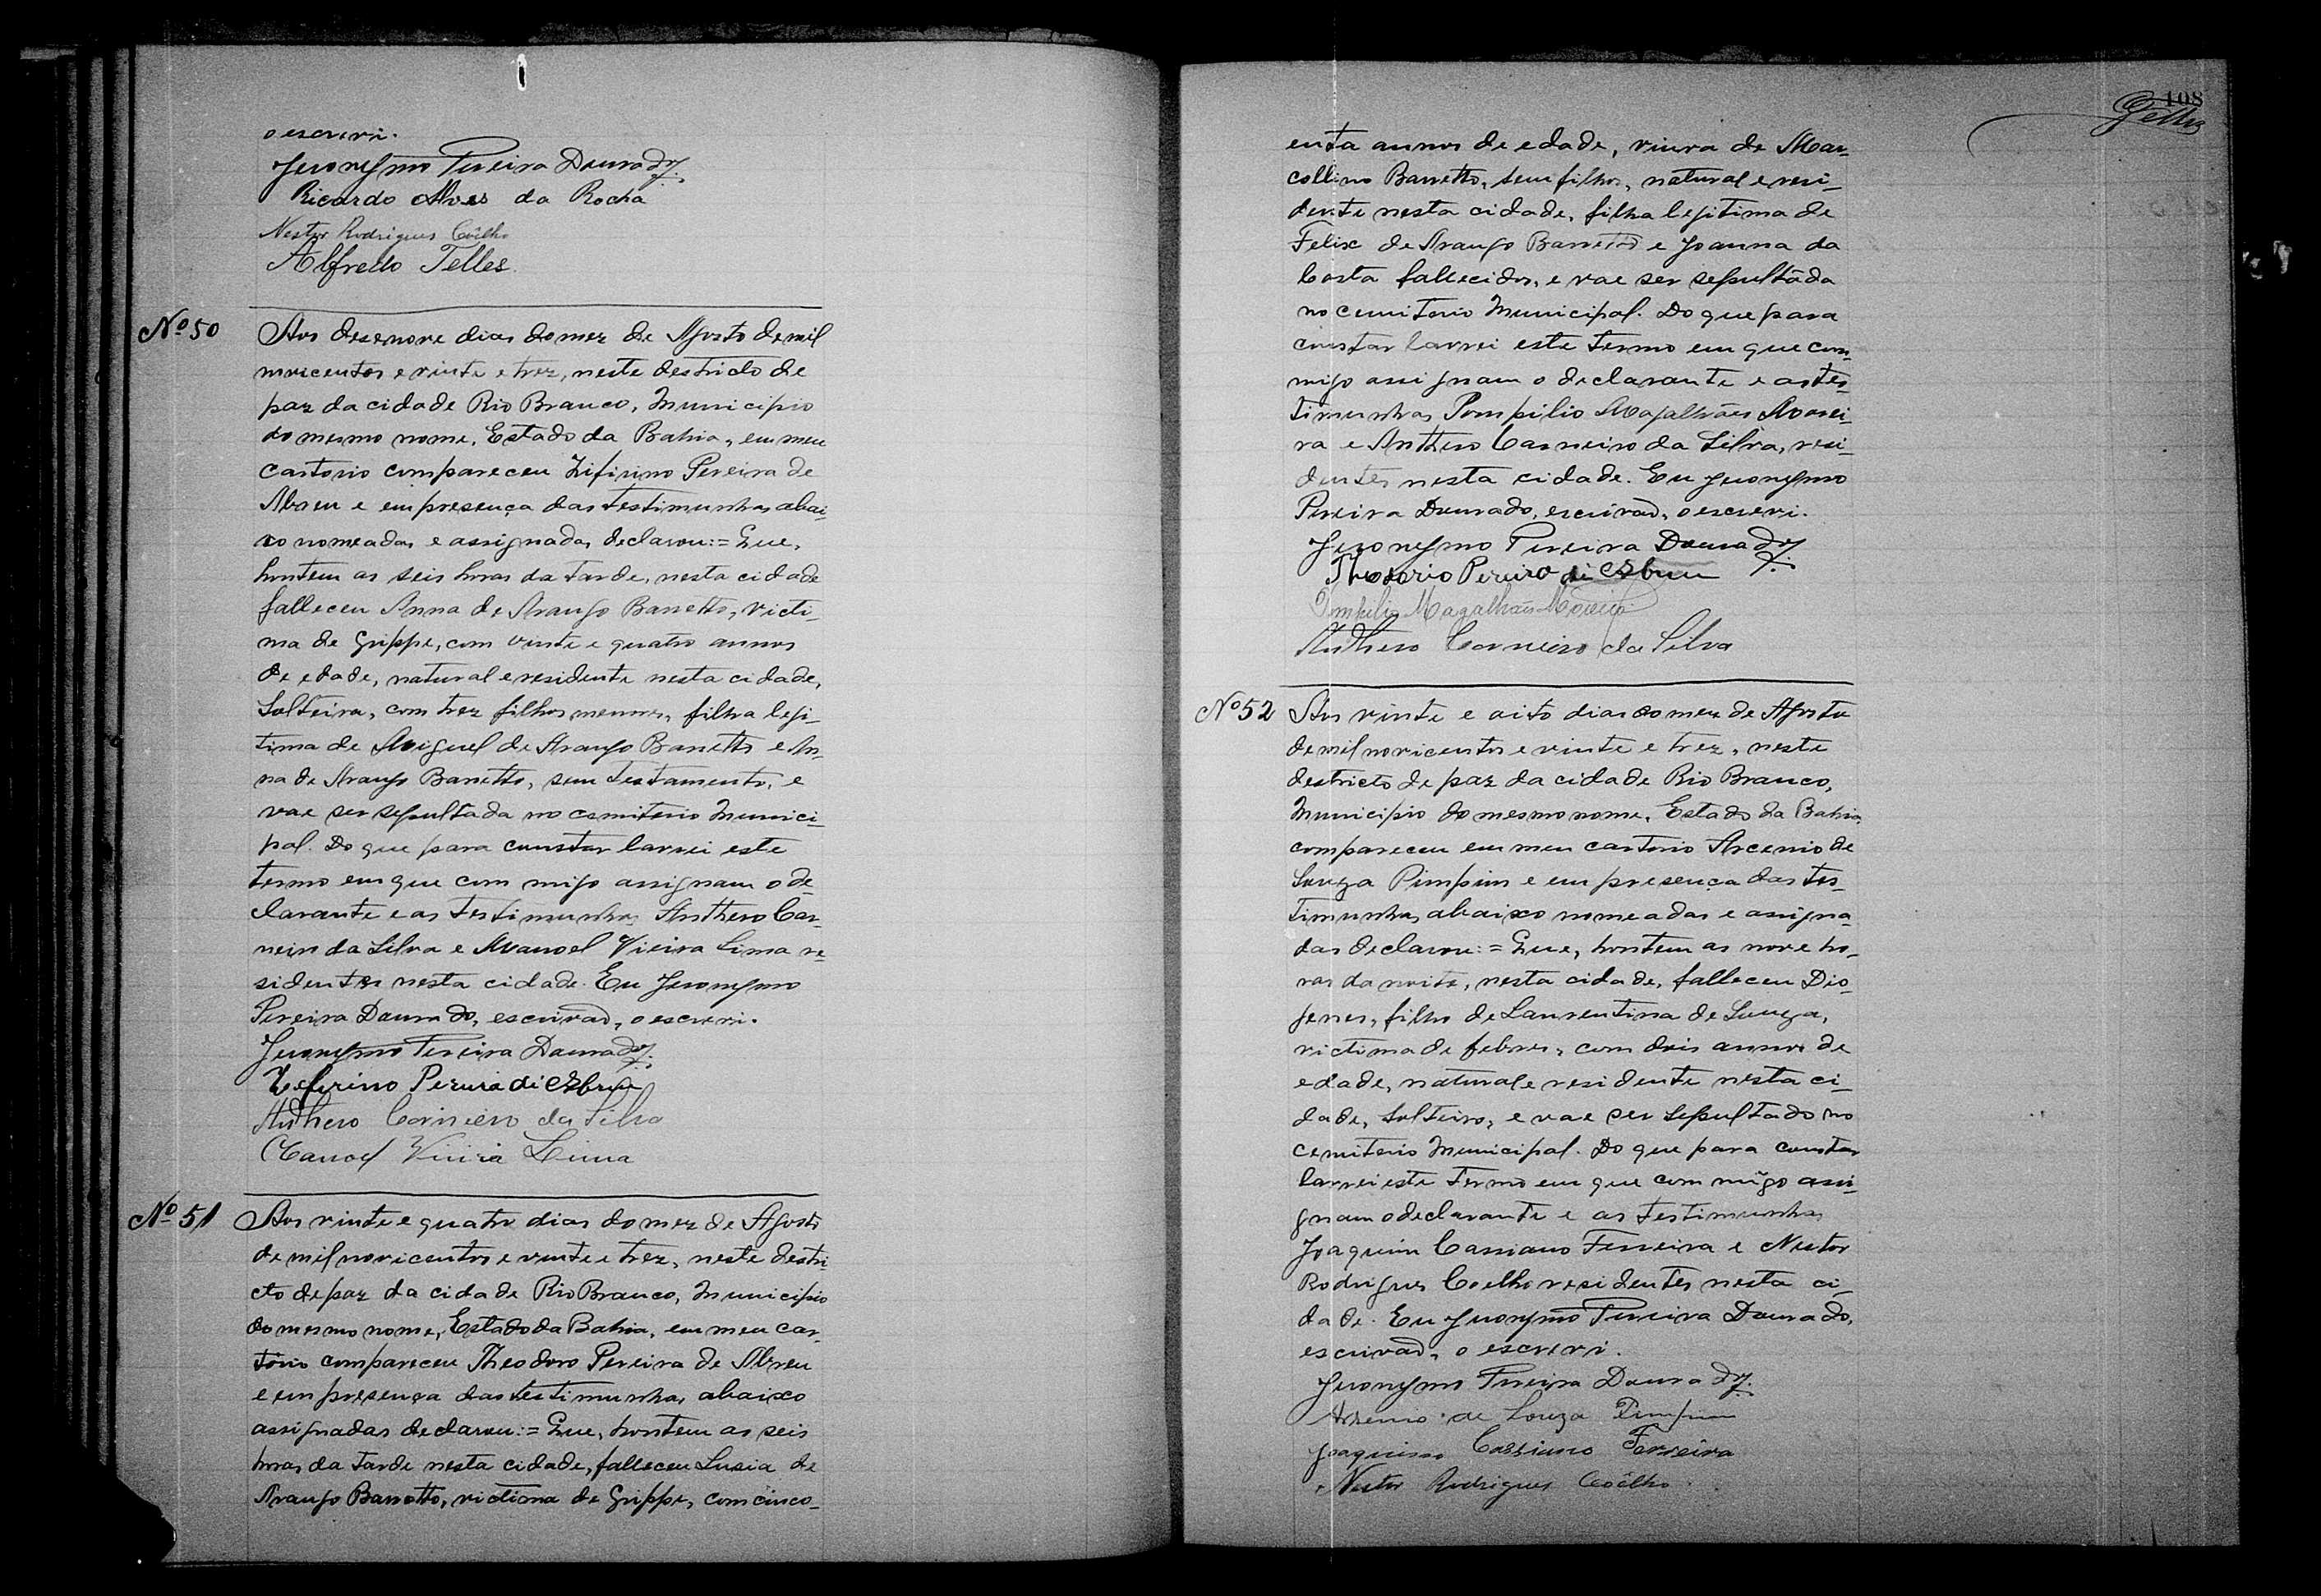 o escrevi.
Jeronymo Pereira Dourado
Ricardo Alves da Rocha
Nestor Rodrigues Coêlho
Alfredo Telles
Nº 50
Aos desenove dias do mez de Agosto de mil
novicentos e vinte e trez, neste destricto de
paz da cidade Rio Branco, Municipio
do mesmo nome, Estado da Bahia, em meu
cartorio compareceu Zifirino Pereira de
Abreu e em presença das testimunhas abai-
xo nomeadas e assignadas declarou:= Que,
hontem as seis horas da tarde, nesta cidade
falleceu Anna de Araujo Barretto, victi-
ma de Grippe, com vinte e quatro annos
de edade, natural e residente nesta cidade,
Solteira, com trez filhos menores, filha legi-
tima de Miguel de Araujo Barretto e An-
na de Araujo Barretto, sem testamento, e
vae ser sepultada no cemiterio Munici-
pal. Do que para constar lavrei este
termo em que com migo assignam o de-
clarante e as testimunhas Anthero Car-
neiro da Silva e Manoel Vieira Lima re-
sidentes nesta cidade. Eu Jeronymo
Pereira Dourado, escrivão, o escrevi.
Jeronymo Pereira Dourado
Zeferino Pereira di Abreu
Anthero Carneiro da Silva
Manoel Vieira Lima
Nº 51
Aos vinte e quatro dias do mez de Agosto
de mil novicentos e vinte e trez, neste destri-
cto de paz da cidade Rio Branco, Municipio
do mesmo nome, Estado da Bahia, em meu car-
torio compareceu Theodoro Pereira de Abreu
e em presença das testimunhas abaixo
assignadas declarou:= Que, hontem as seis
horas da tarde nesta cidade, falleceu Lusia de
Araujo Barretto, victima de Grippe, com cinco-
108
Telles
enta annos de edade, viuva de Mar-
collino Barretto, sem filhos, natural e resi-
dente nesta cidade, filha legitima de
Felix de Araujo Barretto e Joanna da
Costa fallecidos, e vae ser sepultada
no cemiterio Municipal. Do que para
constar lavrei este termo em que com-
migo assignam o declarante e as tes-
timunhas Pompilio Magalhães Morei-
ra e Anthero Carneiro da Silva, resi-
dentes nesta cidade. Eu Jeronymo
Pereira Dourado, escrivão, o escrevi.
Jeronymo Pereira Dourado
Pereira di Abreu
Pompilio Magalhães Moreira
Anthero Carneiro da Silva
Nº 52
Aos vinte e oito dias do mez de Agosto
de mil novicentos e vinte e trez, neste
destricto de paz da cidade Rio Branco,
Municipio do mesmo nome, Estado da Bahia
compareceu em meu cartorio Arcenio de
Souza Pimpim e em presença das tes-
timunhas abaixo nomeadas e assigna-
das declarou:= Que, hontem as nove ho-
ras da noite, nesta cidade, falleceu Dio-
genes, filho de Laurentina de Souza,
victima de febres, com dois annos de
edade, natural e residente nesta ci-
dade, solteiro, e vae ser sepultado no
cemiterio Municipal. Do que para constar
lavrei este termo em que com migo assi-
gnam o declarante e as testimunhas
Joaquim Cassiano Ferreira e Nestor
Rodrigues Coelho residentes nesta ci-
dade. Eu Jeronymo Pereira Dourado,
escrivão, o escrevi.
Jeronymo Pereira Dourado
Arsenio de Souza Pimpim
Joaquim Cassiano Ferreira
Nestor Rodrigues Coêlho